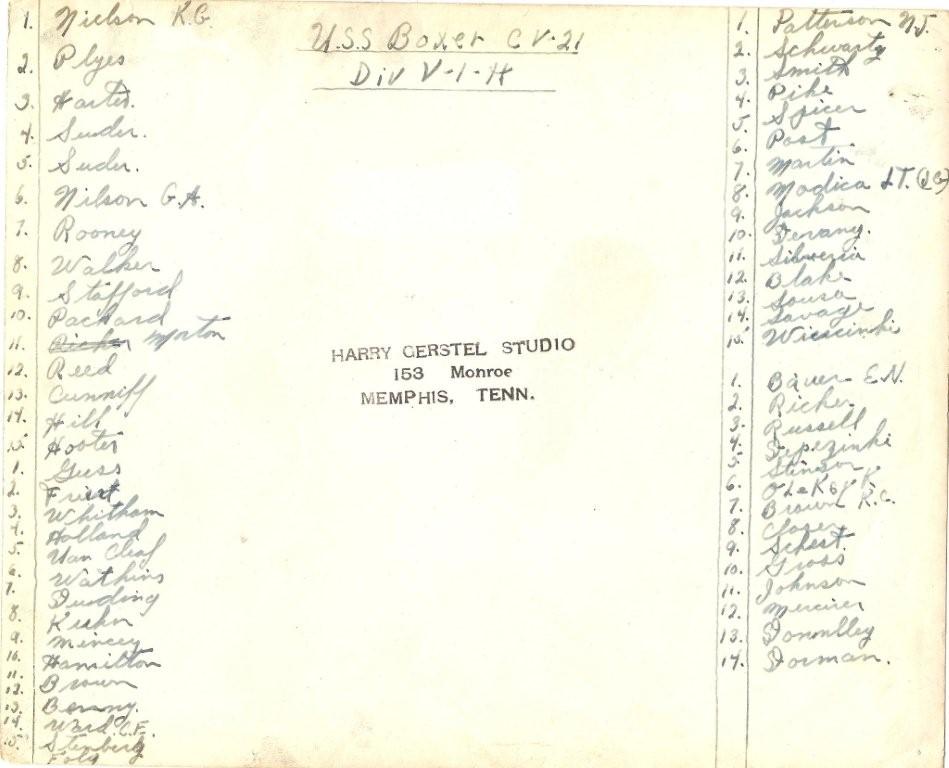 1. Nielson K.G.
2. Plyes
3. Harter.
4. Suder.
5. Suder.
6. Nilson G.A.
7. Rooney
8. Walker
9. Stafford
10. Packard
11. Morton
12. Reed
13. Cunniff
14. Hill
15. Hooter
1. Guss
2.
3. Whitham
4. Holland
5. Van Cleaf
6. Watkins
7.
8. Kuhn
9. Mincey
10. Hamilton
11. Brown
12. Benny.
13. Ward C.F.
14. Stenberg
15. Foly
U.S.S Boxer CV-21
Div V-1-H
HARRY GERSTEL STUDIO
153 Monroe
MEMPHIS, TENN.
1. Patterson N.J.
2. Schwartz
3. Smith
4. Pike
5. Spicer
6. Post.
7. Martin
8. Modica LT. (JG)
9. Jackson
10. Devany.
11. Silveria
12. Blake
13. Sousa
14. Savage
15. Wiescinski
1. Bauer E.N.
2. Richer
3. Russell
4.
5. Stinson
6.
7. Brown R.C.
8. Closer
9. Schest.
10. Gross
11. Johnson
12. Mercier
13. Donnlley
14. Dorman.